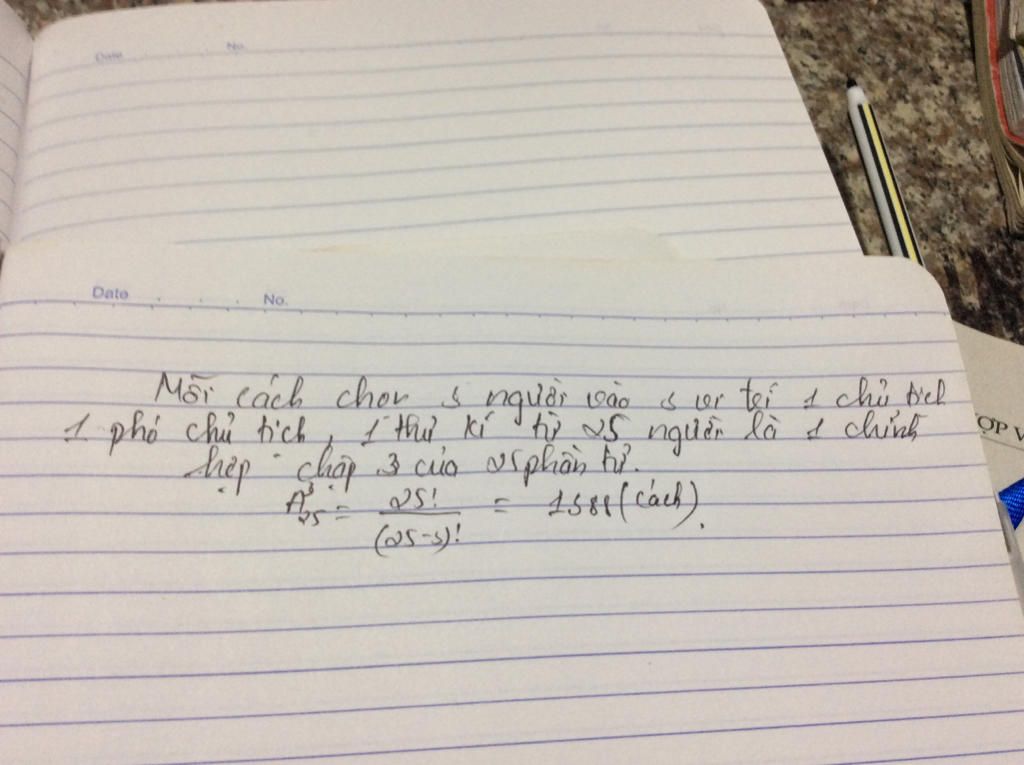 Date No.
Date . . . No.
Mỗi cách chọn 3 người vào 3 vị trí 1 chủ tịch
1 phó chủ tịch, 1 thư kí từ 25 người là 1 chỉnh
hợp chập 3 của 25 phần tử.
A³₂₅ = 25! / (25-3)! = (cách).
ỢP V